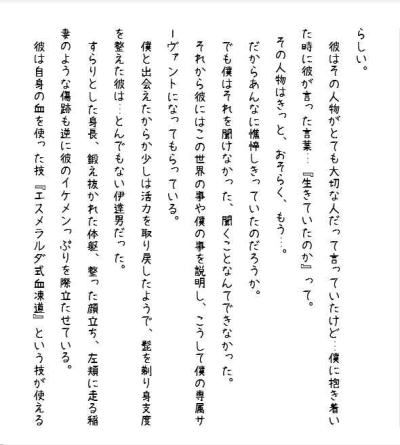 らしい。
彼はその人物がとても大切な人だって言っていたけど…僕に抱き着い
た時に彼が言った言葉…『生きていたのか』って。
その人物はきっと、おそらく、もう…。
だからあんなに憔悴しきっていたのだろうか。
でも僕はそれを聞けなかった、聞くことなんてできなかった。
それから彼にはこの世界の事や僕の事を説明し、こうして僕の専属サ
ーヴァントになってもらっている。
僕と出会えたからか少しは活力を取り戻したようで、髭を剃り身支度
を整えた彼は…とんでもない伊達男だった。
すらりとした身長、鍛え抜かれた体躯、整った顔立ち、左頬に走る稲
妻のような傷跡も逆に彼のイケメンっぷりを際立たせている。
彼は自身の血を使った技『エスメラルダ式血凍道』という技が使える